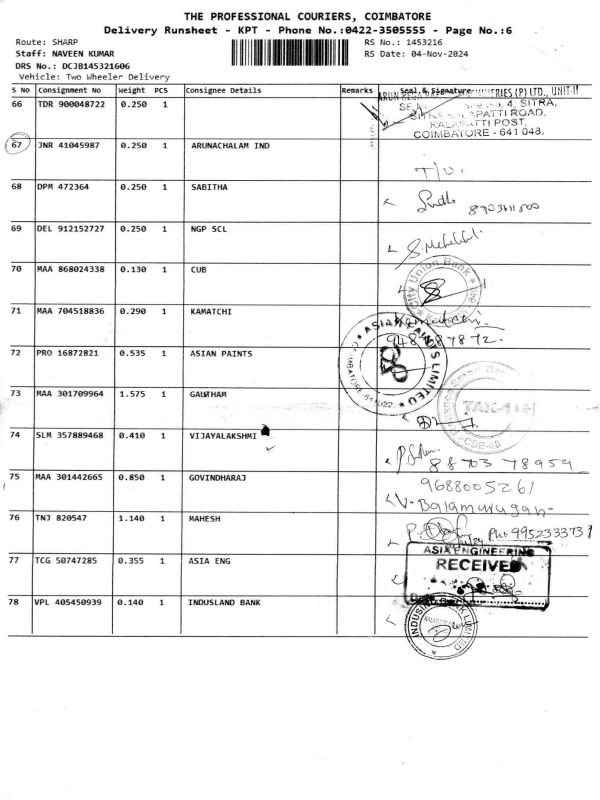 THE PROFESSIONAL COURIERS, COIMBATORE
Delivery Runsheet - KPT - Phone No.:0422-3505555 - Page No.:6
Route: SHARP RS No.: 1453216
Staff: NAVEEN KUMAR RS Date: 04-Nov-2024
DRS No.: DCJB145321606
Vehicle: Two Wheeler Delivery
S No Consignment No Weight PCS Consignee Details Remarks Seal & Signature
(P) LTD., UNIT-II
66 TDR 900048722 0.250 1
4, SITRA,
KALAPATTI ROAD,
KALAPATTI POST,
COIMBATORE - 641 048.
67 JNR 41045987 0.250 1 ARUNACHALAM IND
68 DPM 472364 0.250 1 SABITHA
69 DEL 912152727 0.250 1 NGP SCL
70 MAA 868024338 0.130 1 CUB
City Union Bank
71 MAA 704518836 0.290 1 KAMATCHI
72 PRO 16872821 0.535 1 ASIAN PAINTS
ASIAN PAINTS LIMITED
73 MAA 301709964 1.575 1 GAUTHAM
74 SLM 357889468 0.410 1 VIJAYALAKSHMI
88703 78959
75 MAA 301442665 0.850 1 GOVINDHARAJ
9688005261
V. Balamurugan
76 TNJ 820547 1.140 1 MAHESH
Ph: 9952333731
77 TCG 50747285 0.355 1 ASIA ENG
ASIA ENGINEERING
RECEIVED
78 VPL 405450939 0.140 1 INDUSLAND BANK